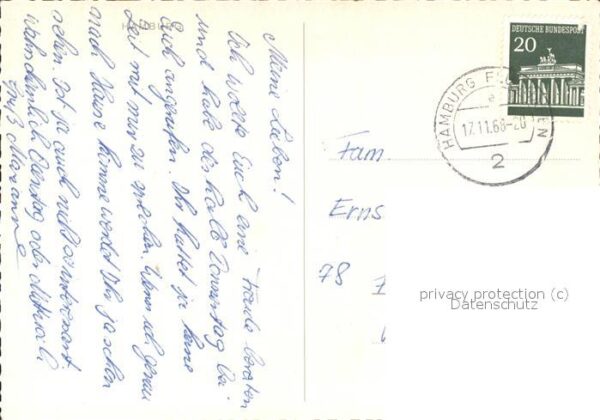 HAMBURG
Meine Lieben!
Ich wollte Euch eine Freude bereiten
und habe deshalb Donnerstag bei
Euch angerufen. Ihr hattet ja keine
Zeit mit mir zu sprechen. Wenn ich genau
nach Hause komme werdet Ihr ja schon
sehen. Ist ja auch nicht so interessant.
Wahrscheinlich Dienstag oder Mittwoch
Gruß Marianne
DEUTSCHE BUNDESPOST
20
HAMBURG
17.11.68-20
2
Fam.
Erns
78
privacy protection (c)
Datenschutz